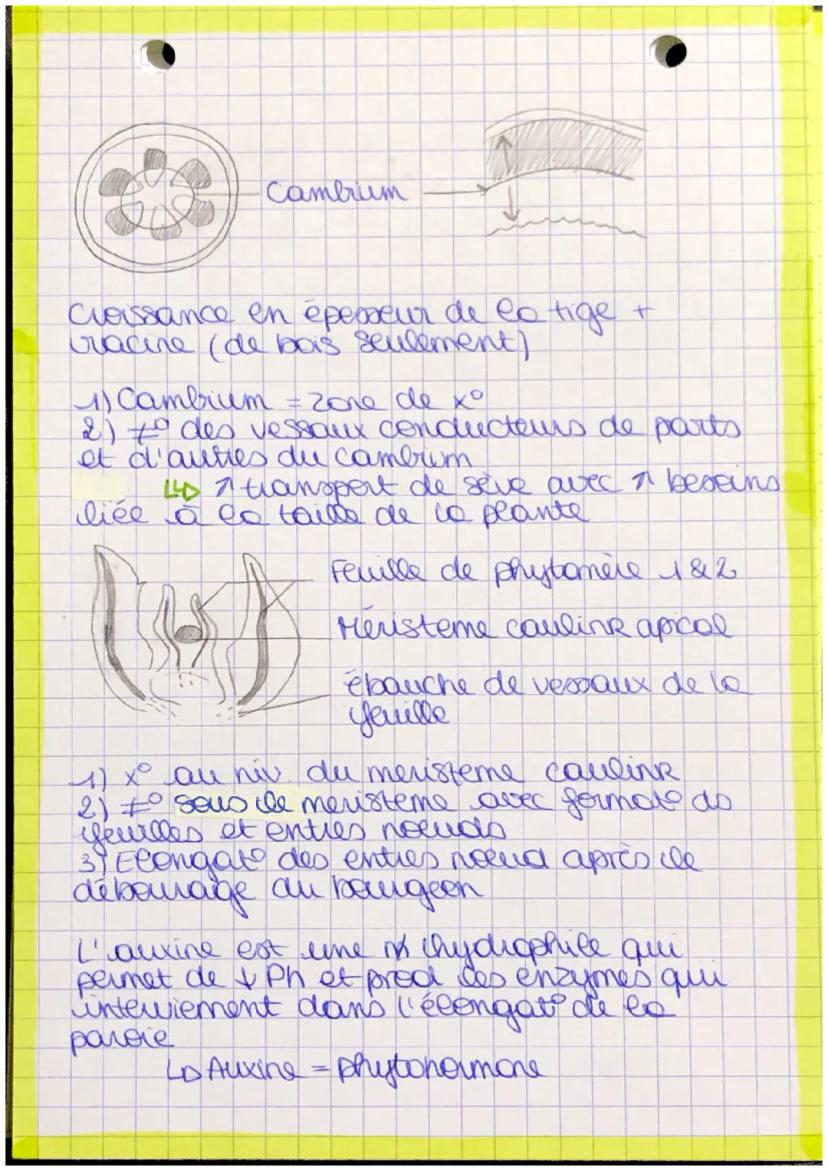 Cambrium
Croissance en épesseur de la tige +
racine (de bois seulement)
1) Cambrium = zone de x°
2) ≠° des vessaux conducteurs de parts
et d'autres du cambrium
↳ ↗ transport de sève avec ↗ besoins
liée à la taille de la plante
Feuille de phytomère 1 & 2
Méristeme caulinR apical
ébauche de vessaux de la
feuille
1) x° au niv du meristeme caulinR
2) ≠° sous le meristeme avec format° do
feuilles et entres noeuds
3) Elongat° des entres noeud après le
débourage du bourgeon
L'auxine est une hydrophile qui
permet de ↓ Ph et prod les enzymes qui
interviement dans l'élongat° de la
paroie
↳ Auxine = phytohormone